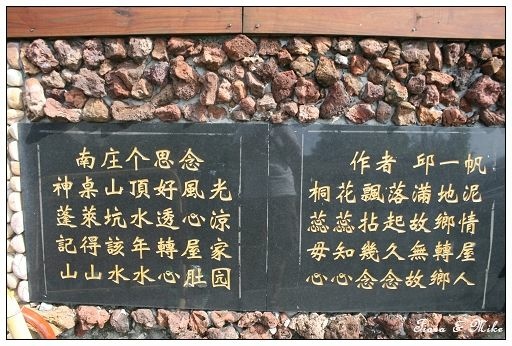 南庄个思念
神桌山頂好風光
蓬萊坑水透心涼
記得該年轉屋家
山山水水心肚园
作者 邱一帆
桐花飄落滿地泥
蕊蕊拈起故鄉情
毋知幾久無轉屋
心心念念故鄉人
Siena & Mike